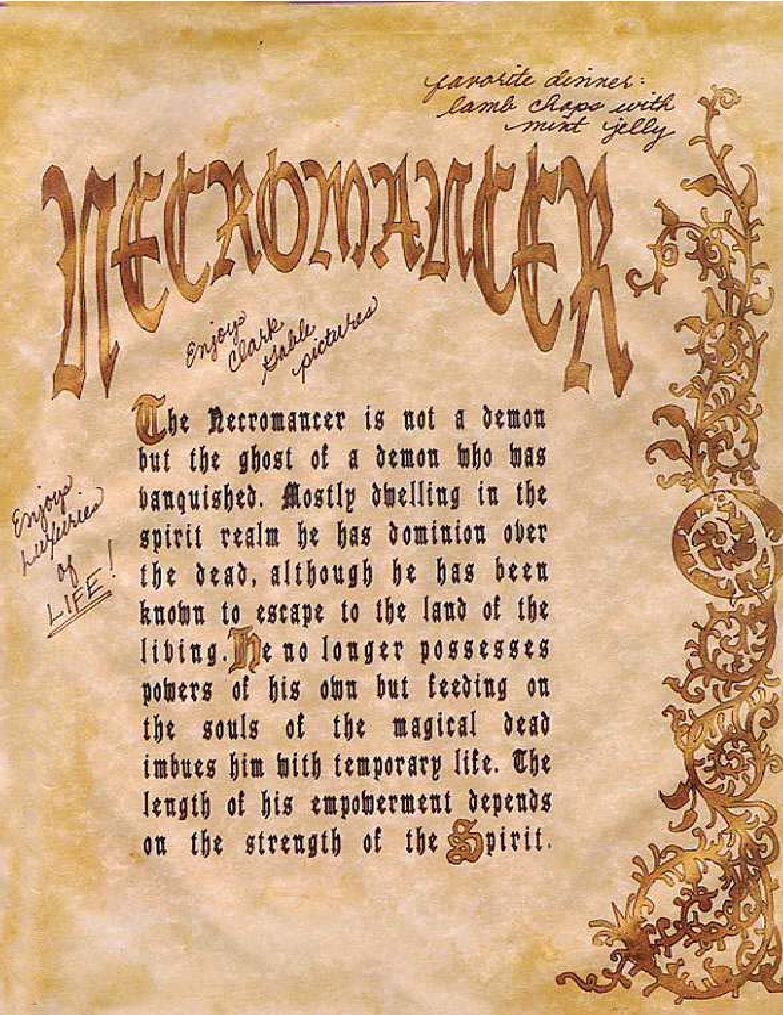 favorite dinner:
lamb chops with
mint jelly
NECROMANCER
Enjoys
Clark
Gable
pictures
The Necromancer is not a demon
but the ghost of a demon who was
vanquished. Mostly dwelling in the
spirit realm he has dominion over
the dead, although he has been
known to escape to the land of the
living. He no longer possesses
powers of his own but feeding on
the souls of the magical dead
imbues him with temporary life. The
length of his empowerment depends
on the strength of the Spirit.
Enjoys
Luxuries
of
LIFE!